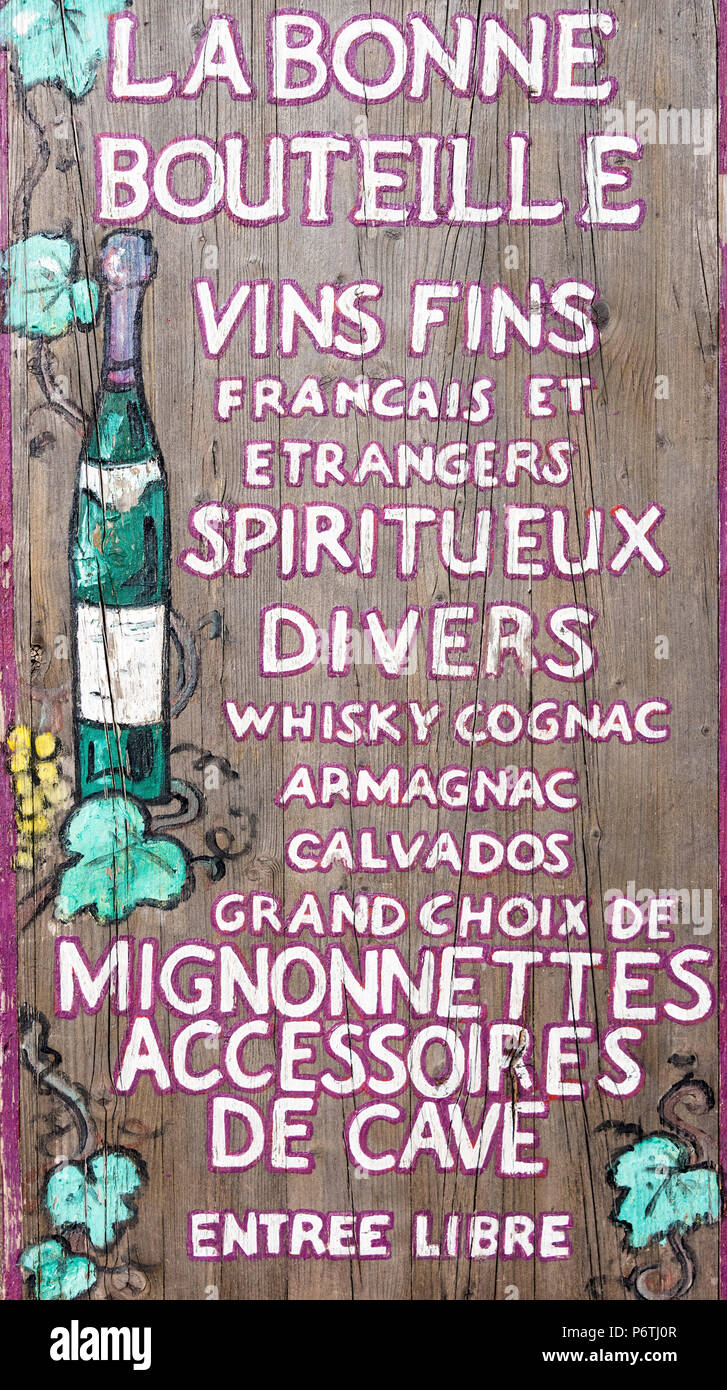 LA BONNE
BOUTEILLE
VINS FINS
FRANCAIS ET
ETRANGERS
SPIRITUEUX
DIVERS
WHISKY COGNAC
ARMAGNAC
CALVADOS
GRAND CHOIX DE
MIGNONNETTES
ACCESSOIRES
DE CAVE
ENTREE LIBRE
alamy
Image ID: P6TJ0R
www.alamy.com